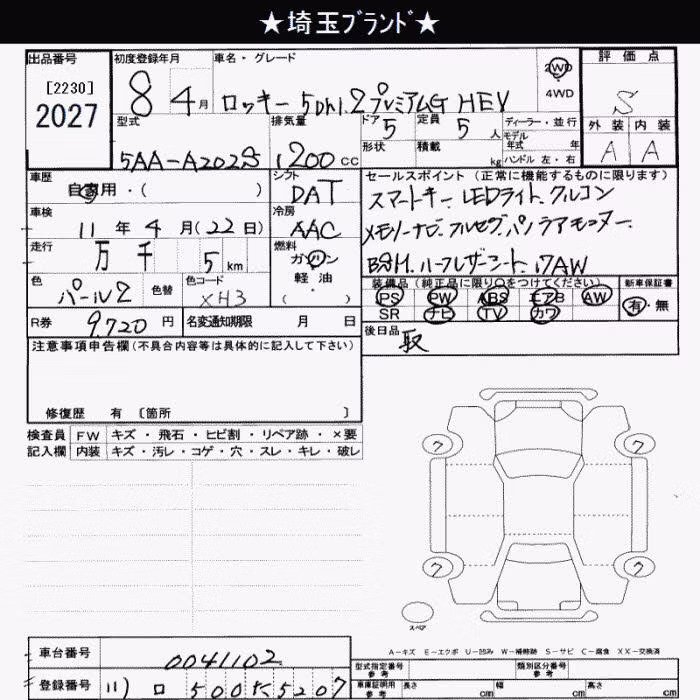 ★埼玉ブランド★
出品番号 初度登録年月 車名・グレード 評価点
[2230]
2027
8 4月 ロッキー 5Dr1.2プレミアムG HEV
2WD
4WD
S
型式 排気量 ドア 5 定員 5人 ディーラー・並行
モデル年式 年
外装 内装
5AA-A202S 1200cc 形状 積載 kg ハンドル 左・右
A A
車歴 シフト セールスポイント(正常に機能するものに限ります)
自家用・( ) DAT スマートキー. LEDライト. クルコン
車検 冷房
11年4月(22日) AAC メモリーナビ. フルセグ. パノラマモニター.
走行 燃料
万 千 5km ガソリン BSM. ハーフレザーシート. 17AW
色 色替 色コード 軽油 装備品(純正品に限り○をつけてください) 新車保証書
パール2 XH3 ( ) PS PW ABS エアB AW 有・無
SR ナビ TV カワ
R券 9720円 名変通知期限 月 日
後日品 取
注意事項申告欄(不具合内容等は具体的に記入して下さい)
修復歴 有 〔箇所 〕
検査員 FW キズ・飛石・ヒビ割・リペア跡・×要
記入欄 内装 キズ・汚レ・コゲ・穴・スレ・キレ・破レ
7 7
7 7
スペア
A-キズ E-エクボ U-凹み W-補修跡 S-サビ C-腐食 XX-交換済
車台番号 0041102 型式指定番号 参考 類別区分番号 参考
登録番号 車庫証明用 参考 長さ cm 幅 cm 高さ cm
500 5207